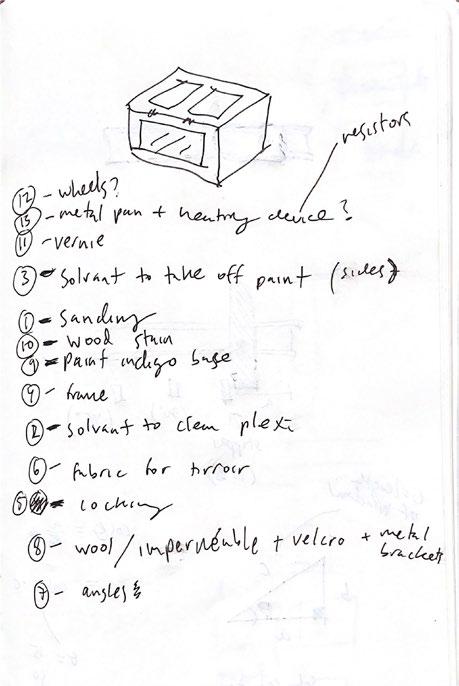 resistors
12 - wheels?
13 - metal pan + heating device?
11 - vernie
3 - Solvant to take off paint (sides)
1 - Sanding
10 - wood stain
9 - paint indigo base
4 - frame
2 - solvant to clean plexi
6 - fabric for mirroir
5 - locking
8 - wool/imperméable + velcro + metal
brackets
7 - angles